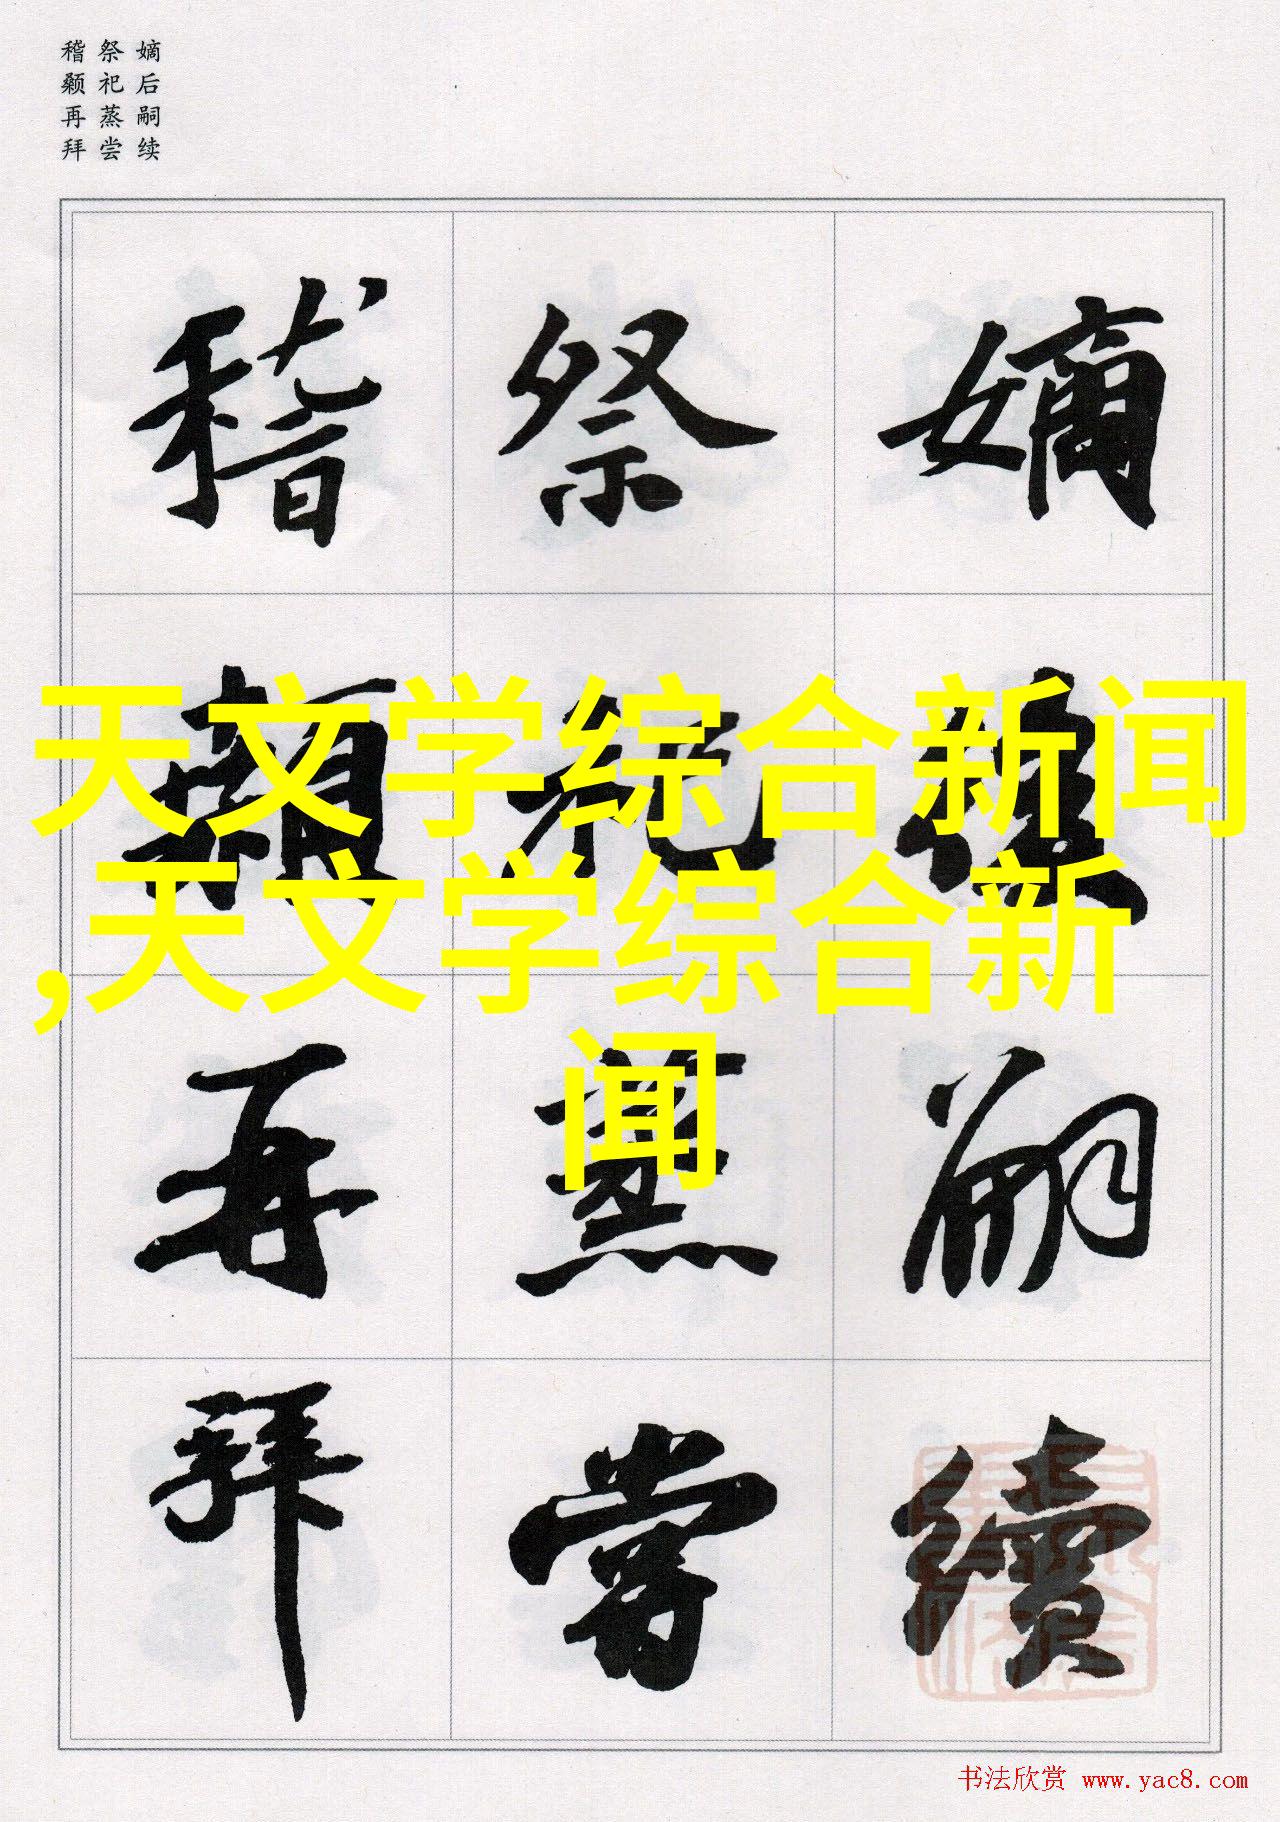 嫡后嗣续
祭祀蒸尝
稽颡再拜
嫡後嗣續
祭祀蒸嘗
稽顙再拜
天文学综合新闻
,天文学综合新
闻
书法欣赏 www.yac8.com